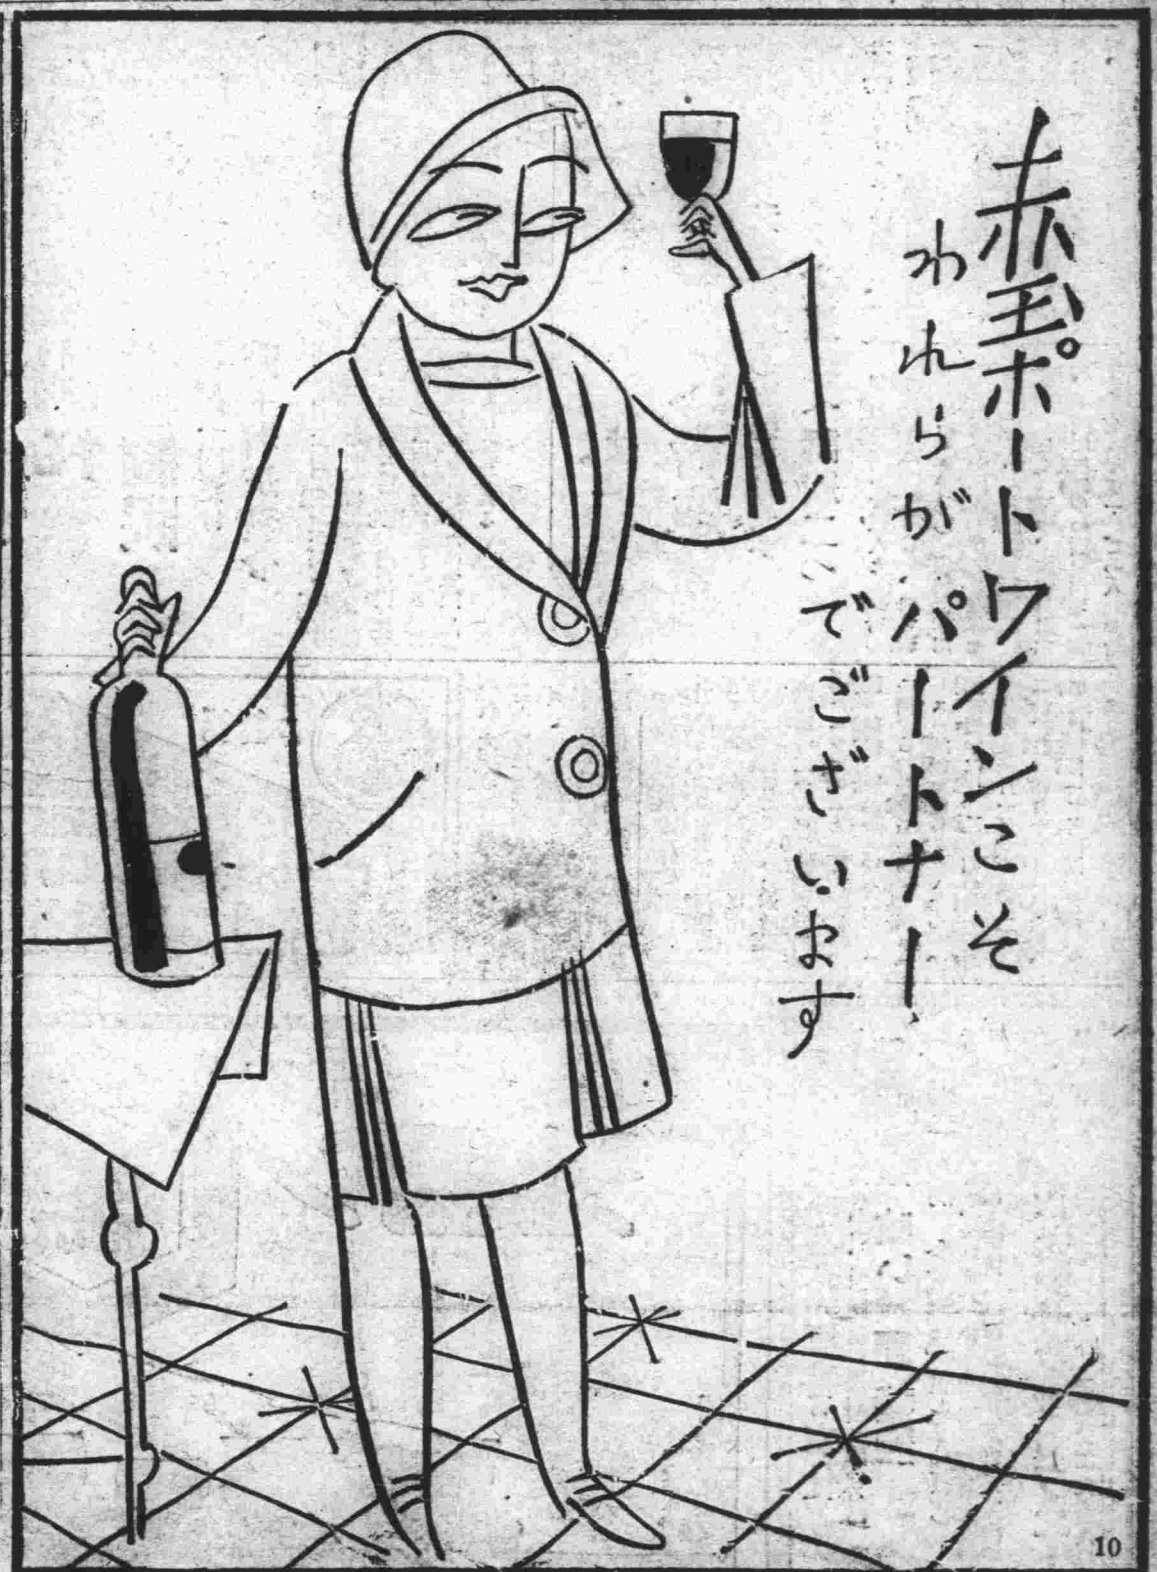 赤玉ポートワインこそ
われらがパートナー
でございます
10